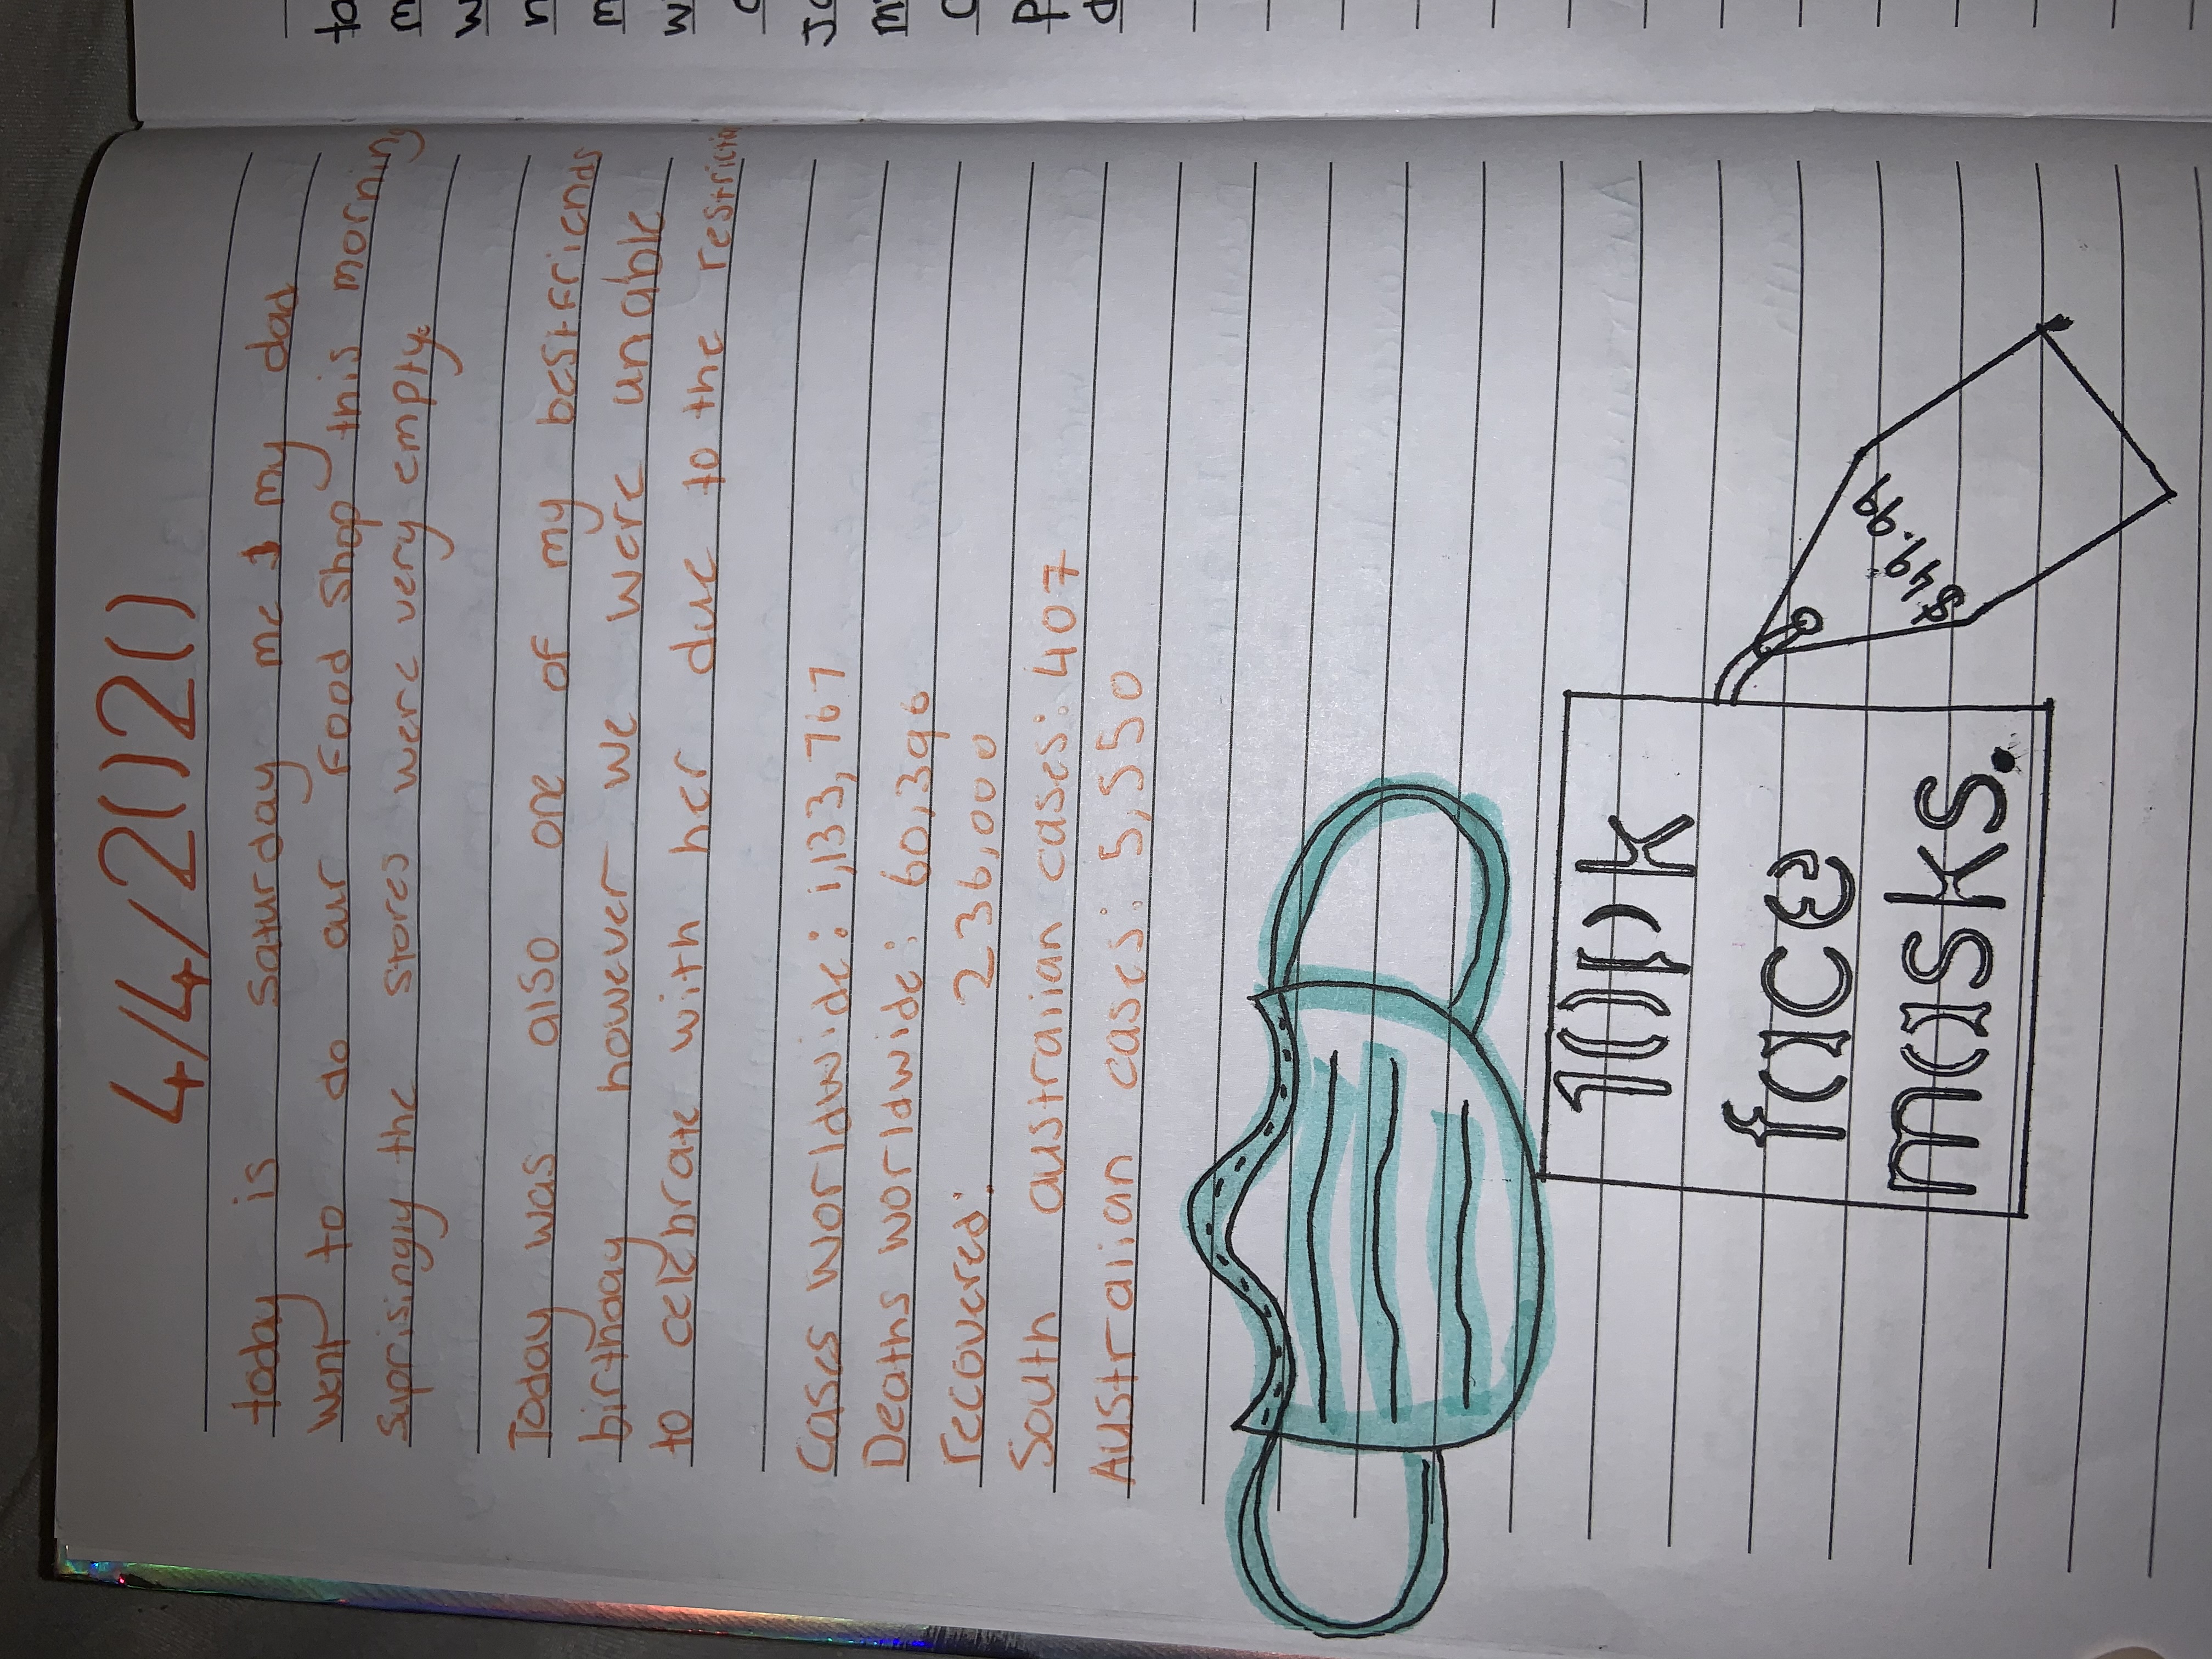 4/4/2020
today is saturday me & my dad
went to do our food shop this morning
suprisingly the stores were very empty.
Today was also one of my bestfriends
birthday however we were unable
to celebrate with her due to the
Cases worldwide: 1,133,767
Deaths worldwide: 60,396
recovered: 236,000
South australian cases: 407
Australian cases: 5,550
10pk
face
masks.
$49.99